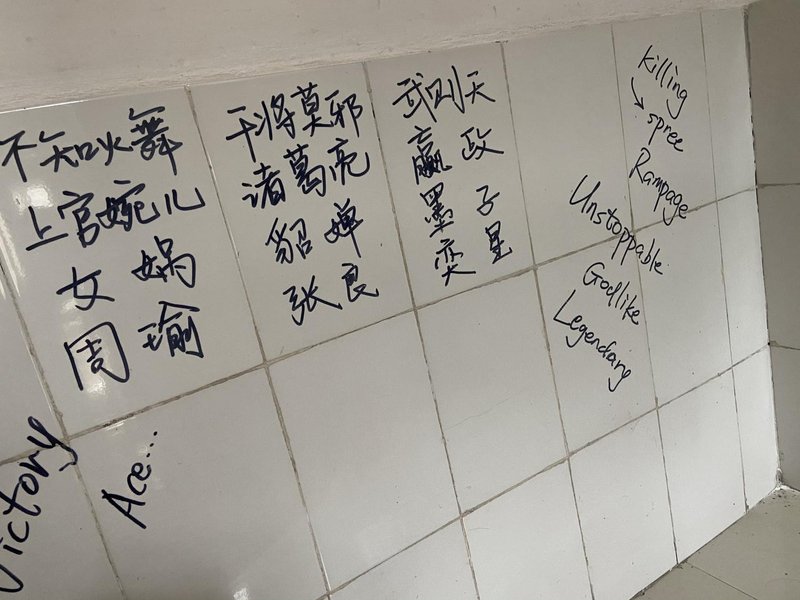 不知火舞
上官婉儿
女娲
周瑜
干将莫邪
诸葛亮
貂婵
张良
武则天
嬴政
墨子
奕星
Killing
spree
Rampage
Unstoppable
Godlike
Legendaing
Victory
Ace...